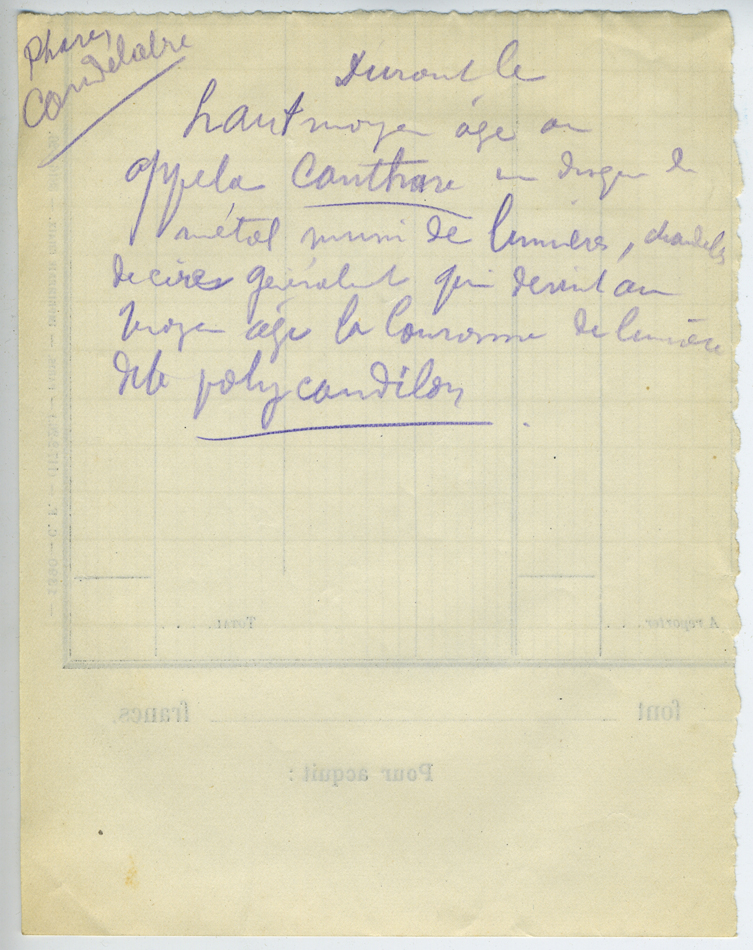 Phares
Candélabre
Durant le
haut moyen âge on
appela Canthare un disque de
métal muni de lumières, chandelles
de cires généralent qui devint au
moyen âge la Couronne de lumière
dite polycandilon
Total
A reporter
font francs
Pour acquit :